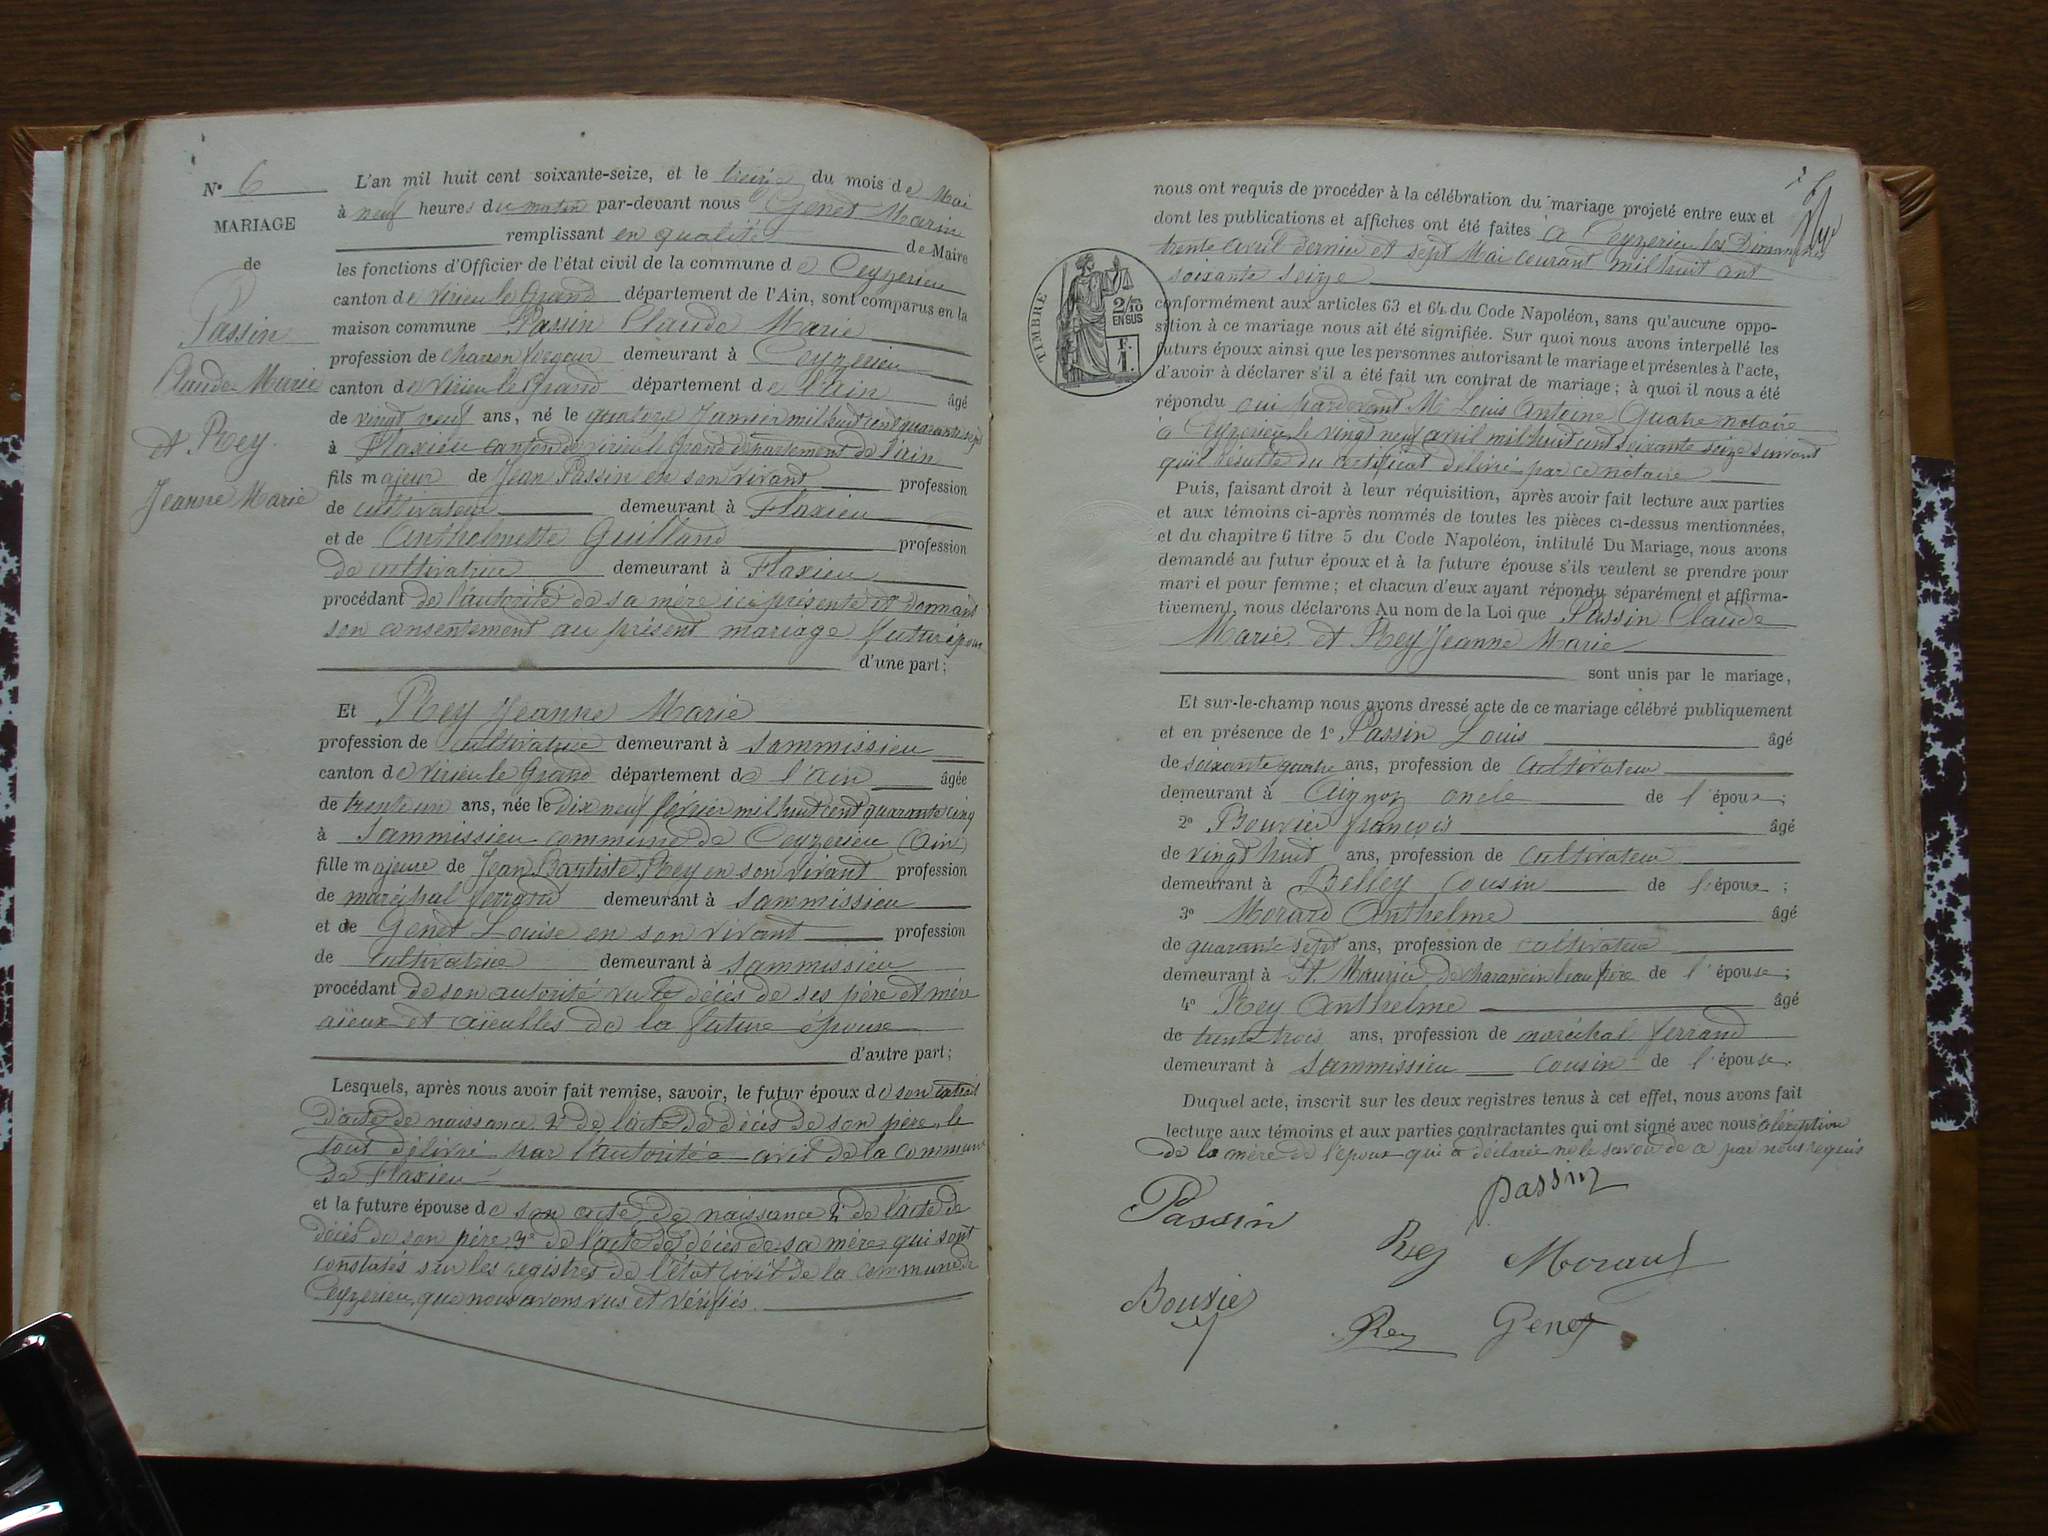 N° 6
MARIAGE
de
Passin
Claude Marie
et Rey
Jeanne Marie
L'an mil huit cent soixante-seize, et le du mois de Mai
à neuf heures du matin par-devant nous Genet Marin
remplissant en qualité de Maire
les fonctions d'Officier de l'état civil de la commune de Ceyzerieu
canton de Virieu le Grand département de l'Ain, sont comparus en la
maison commune Passin Claude Marie
profession de charron forgeur demeurant à Ceyzerieu
canton de Virieu le Grand département de l'Ain âgé
de vingt neuf ans, né le quatorze Janvier mil huit cent quarante sept
à Flaxieu canton de Virieu le Grand département de l'ain
fils majeur de Jean Passin en son vivant profession
de cultivateur demeurant à Flaxieu
et de Anthelmette Guilland profession
de cultivatrice demeurant à Flaxieu
procédant de l'autorité de sa mère ici présente et donnant
son consentement au présent mariage futur époux
d'une part;
Et Rey Jeanne Marie
profession de cultivatrice demeurant à Sammissieu
canton de Virieu le Grand département de l'ain âgée
de trente un ans, née le dix neuf février mil huit cent quarante cinq
à Sammissieu commune de Ceyzerieu (Ain)
fille majeure de Jean Baptiste Rey en son vivant profession
de maréchal ferrand demeurant à Sammissieu
et de Genet Louise en son vivant profession
de cultivatrice demeurant à Sammissieu
procédant de son autorité vu le décès de ses père et mère
aïeux et aïeulles de la future épouse
d'autre part;
Lesquels, après nous avoir fait remise, savoir, le futur époux de son extrait
d'acte de naissance 2° de l'acte de décès de son père, le
tout délivré par l'autorité civil de la commune
de Flaxieu
et la future épouse de son acte de naissance 2° de l'acte de
décès de son père 3° de l'acte de décès de sa mère qui sont
constatés sur les registres de l'état civil de la commune de
Ceyzerieu, que nous avons vus et vérifiés.
nous ont requis de procéder à la célébration du mariage projeté entre eux et
dont les publications et affiches ont été faites à Ceyzerieu les Dimanches
trente avril dernier et sept Mai courant mil huit cent
soixante seize
TIMBRE
2/10
EN SUS
F.
1.
conformément aux articles 63 et 64 du Code Napoléon, sans qu'aucune oppo-
sition à ce mariage nous ait été signifiée. Sur quoi nous avons interpellé les
futurs époux ainsi que les personnes autorisant le mariage et présentes à l'acte,
d'avoir à déclarer s'il a été fait un contrat de mariage; à quoi il nous a été
répondu oui pardevant Me Louis Antoine Quatre notaire
à Ceyzerieu le vingt neuf avril mil huit cent soixante seize suivant
qu'il résulte du certificat délivré par ce notaire
Puis, faisant droit à leur réquisition, après avoir fait lecture aux parties
et aux témoins ci-après nommés de toutes les pièces ci-dessus mentionnées,
et du chapitre 6 titre 5 du Code Napoléon, intitulé Du Mariage, nous avons
demandé au futur époux et à la future épouse s'ils veulent se prendre pour
mari et pour femme; et chacun d'eux ayant répondu séparément et affirma-
tivement, nous déclarons Au nom de la Loi que Passin Claude
Marie et Rey Jeanne Marie
sont unis par le mariage,
Et sur-le-champ nous avons dressé acte de ce mariage célébré publiquement
et en présence de 1° Passin Louis âgé
de soixante quatre ans, profession de cultivateur
demeurant à Aignoz oncle de l'époux;
2° Bouvier françois âgé
de vingt huit ans, profession de cultivateur
demeurant à Belley cousin de l'époux;
3° Morand Anthelme âgé
de quarante sept ans, profession de cultivateur
demeurant à St Maurice de charancin beau frère de l'épouse;
4° Rey Anthelme âgé
de trente trois ans, profession de maréchal ferrand
demeurant à Sammissieu cousin de l'épouse.
Duquel acte, inscrit sur les deux registres tenus à cet effet, nous avons fait
lecture aux témoins et aux parties contractantes qui ont signé avec nous à l'exception
de la mère de l'époux qui a déclaré ne le savoir de ce par nous requis
Passin passin
Rey Morand
Bouvier Rey Genet